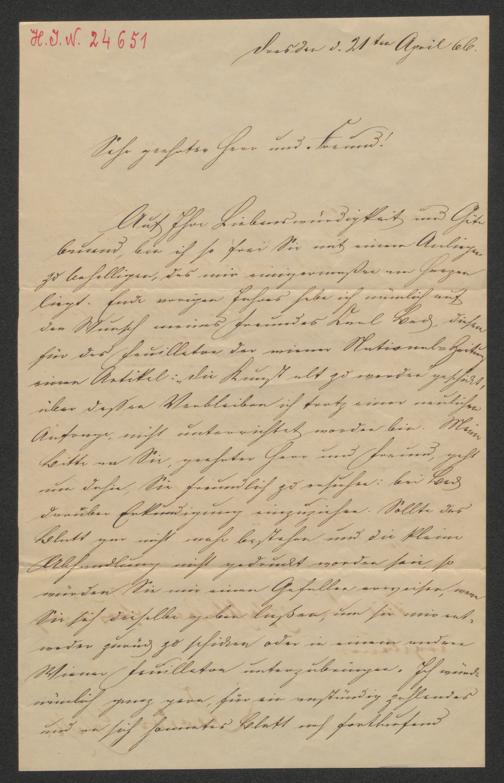 H. I. N. 24651
Dresden d. 21ten April 66.
Sehr geehrter Herr und Freund!
Auf Ihre Liebenswürdigkeit und Güte
bauend, bin ich so frei Sie mit einem Anliegen
zu behelligen, das mir einigermaßen am Herzen
liegt. Ende vorigen Jahres habe ich nämlich auf
den Wunsch meines Freundes Carl Beck diesem
für das Feuilleton der wiener National-Zeitung
einen Artikel: „die Kunst alt zu werden“ geschickt,
über dessen Verbleiben ich trotz einer neulichen
Anfrage, nicht unterrichtet worden bin. Meine
Bitte an Sie, geehrter Herr und Freund, geht
nun dahin, Sie freundlich zu ersuchen: bei Beck
darüber Erkundigung einzuziehen. Sollte das
Blatt gar nicht mehr bestehen und die kleine
Abhandlung nicht gedruckt worden sein, so
würden Sie mir einen Gefallen erweisen, wenn
Sie sich dieselbe geben ließen, um sie mir ent-
weder zurück zu schicken oder in einem andern
Wiener Feuilleton unterzubringen. Ich würde
nämlich ganz gern, für ein anständig zahlendes
und an sich honnettes Blatt noch fortlaufend